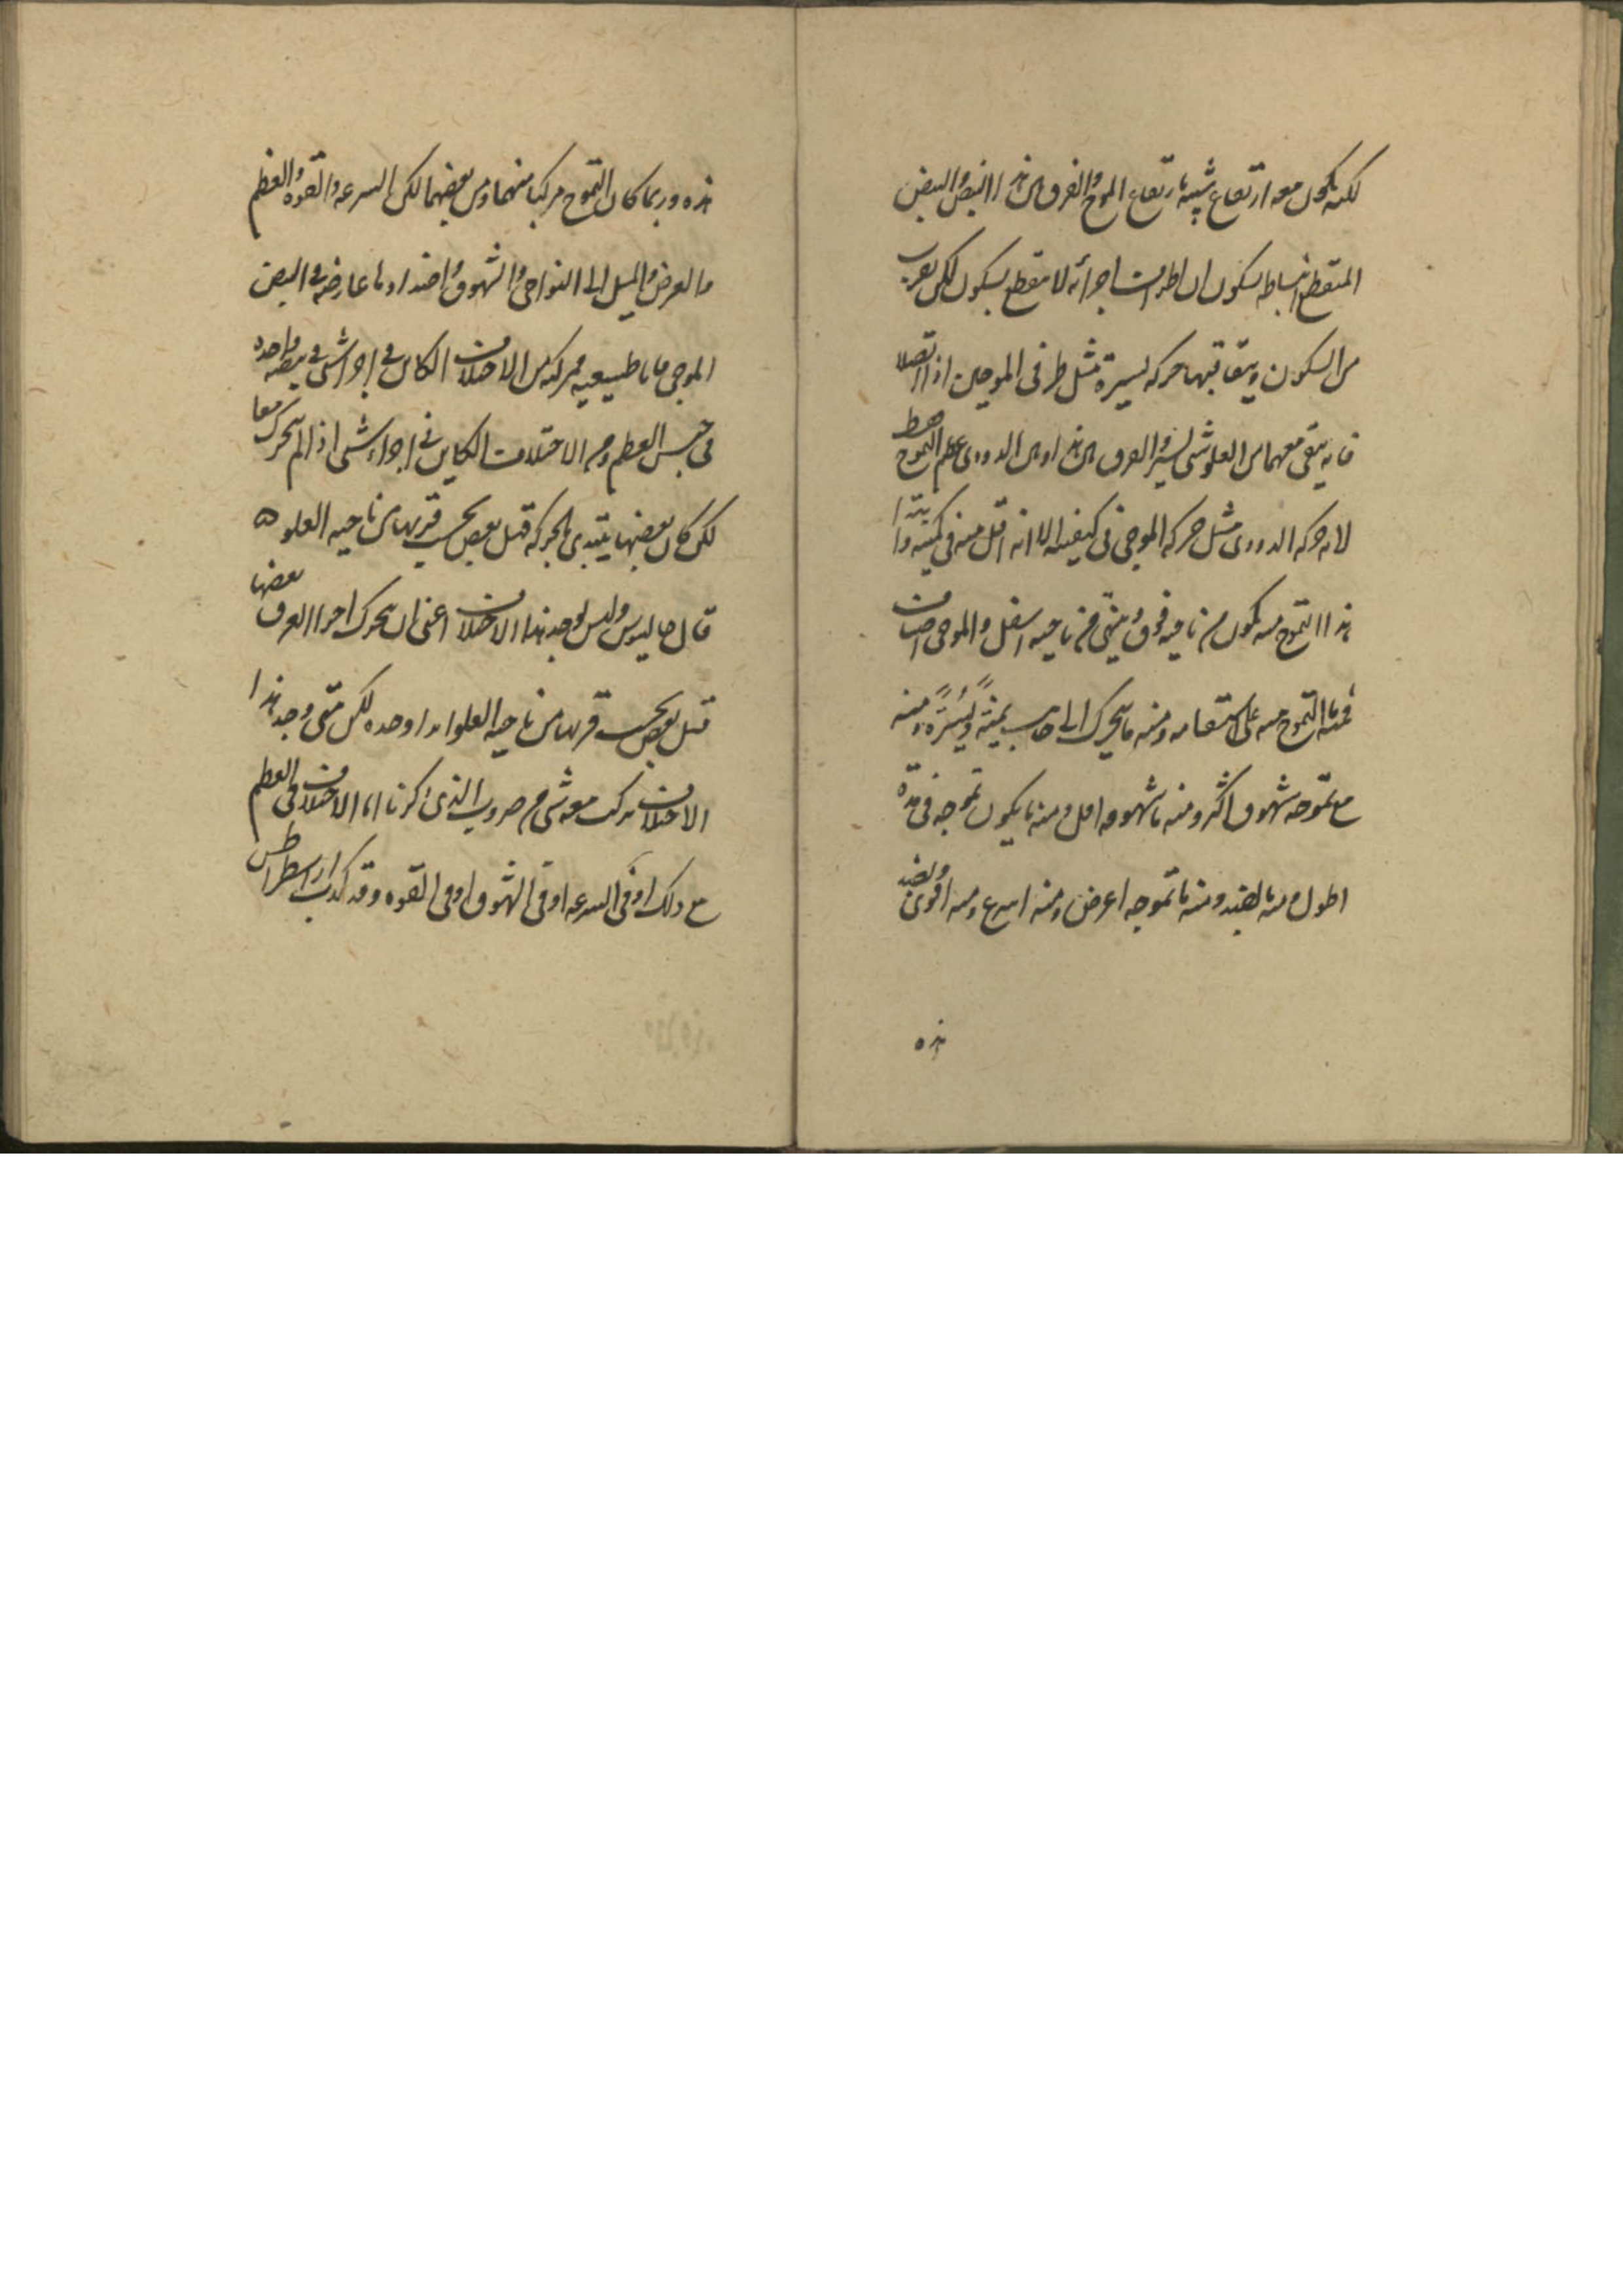 لكنه يكون معه ارتفاع شبيه بارتفاع الموج والفرق بين هذا النبض والنبض
المنقطع انبساطه بسكون ان اطراف اجزائه لا ينقطع بسكون لكن يقرب
من السكون ويتعاقبها حركه يسيرة مثل طرفى الموجين اذا اتصلا
فانه يبقى معهما من العلو شى يسير والفرق بين هذا وبين الدودى عظم التموج فقط
لان حركه الدودى مثل حركه الموجى فى كيفيته الا انه اقل منه فى كميته وابتدا
هذا التموج منه يكون من ناحيه فوق وينتهى من ناحيه اسفل والموجى اصناف
فمنه ما التموج منه على استقامه ومنه ما يتحرك الى جانب يمنةً ويُسرَةً ومنه
مع تموجه شهوق اكثر ومنه ما شهوقه اقل ومنه ما يكون تموجه فى مدّة
اطول ومنه بالضد ومنه ما تموجه اعرض ومنه اسرع ومنه اقوى وبضد
هذه
هذه وربما كان التموج مركبا منهما ومن بعضهما لكن السرعه والقوه والعظم
والعرض والميل الى النواحى والشهوق واضدادها عارضه فى النبض
الموجى فاما طبيعيه فمركبه من الاختلاف الكاين فى اجزا شتى فى نبضه واحده
فى جنس العظم ومن الاختلاف الكاين فى اجزاء شتى اذا لم تتحرك معا
لكن كان بعضها يبتدى بالحركه قبل بعض بحسب قربها من ناحيه العلو ه
قال جالينوس وليس يوجد هذا الاختلاف اعنى ان يتحرك اجزا العرق بعضها
قبل بعض بحسب قربها من ناحيه العلو ابدا وحده لكن متى وجد هذا
الاختلاف تركب معه شى من ضروب الذى ذكرنا اما الاختلاف فى العظم
مع ذلك او فى السرعه او فى الشهوق او فى القوه وقد كذب ارسطراطس